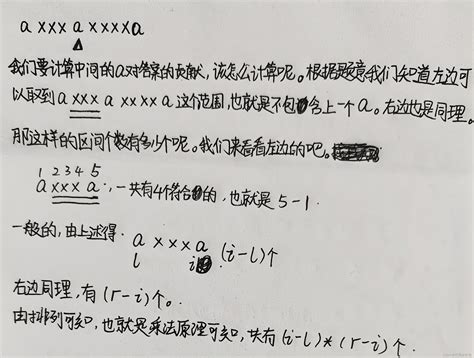 a xxx a xxxxa
△
我们要计算中间的a对答案的贡献，该怎么计算呢。根据题意我们知道左边可
以取到a xxx a xxxx a 这个范围，也就是不包含上一个a。右边也是同理。
那这样的区间个数有多少个呢。我们来看看左边的吧。
1 2 3 4 5
a xxx a，一共有4个符合的，也就是 5-1.
一般的，由上述得. a x x x a (i-l)个
l i
右边同理，有 (r-i)个。
由排列可知，也就是乘法原理可知，共有 (i-l)*(r-i)个.